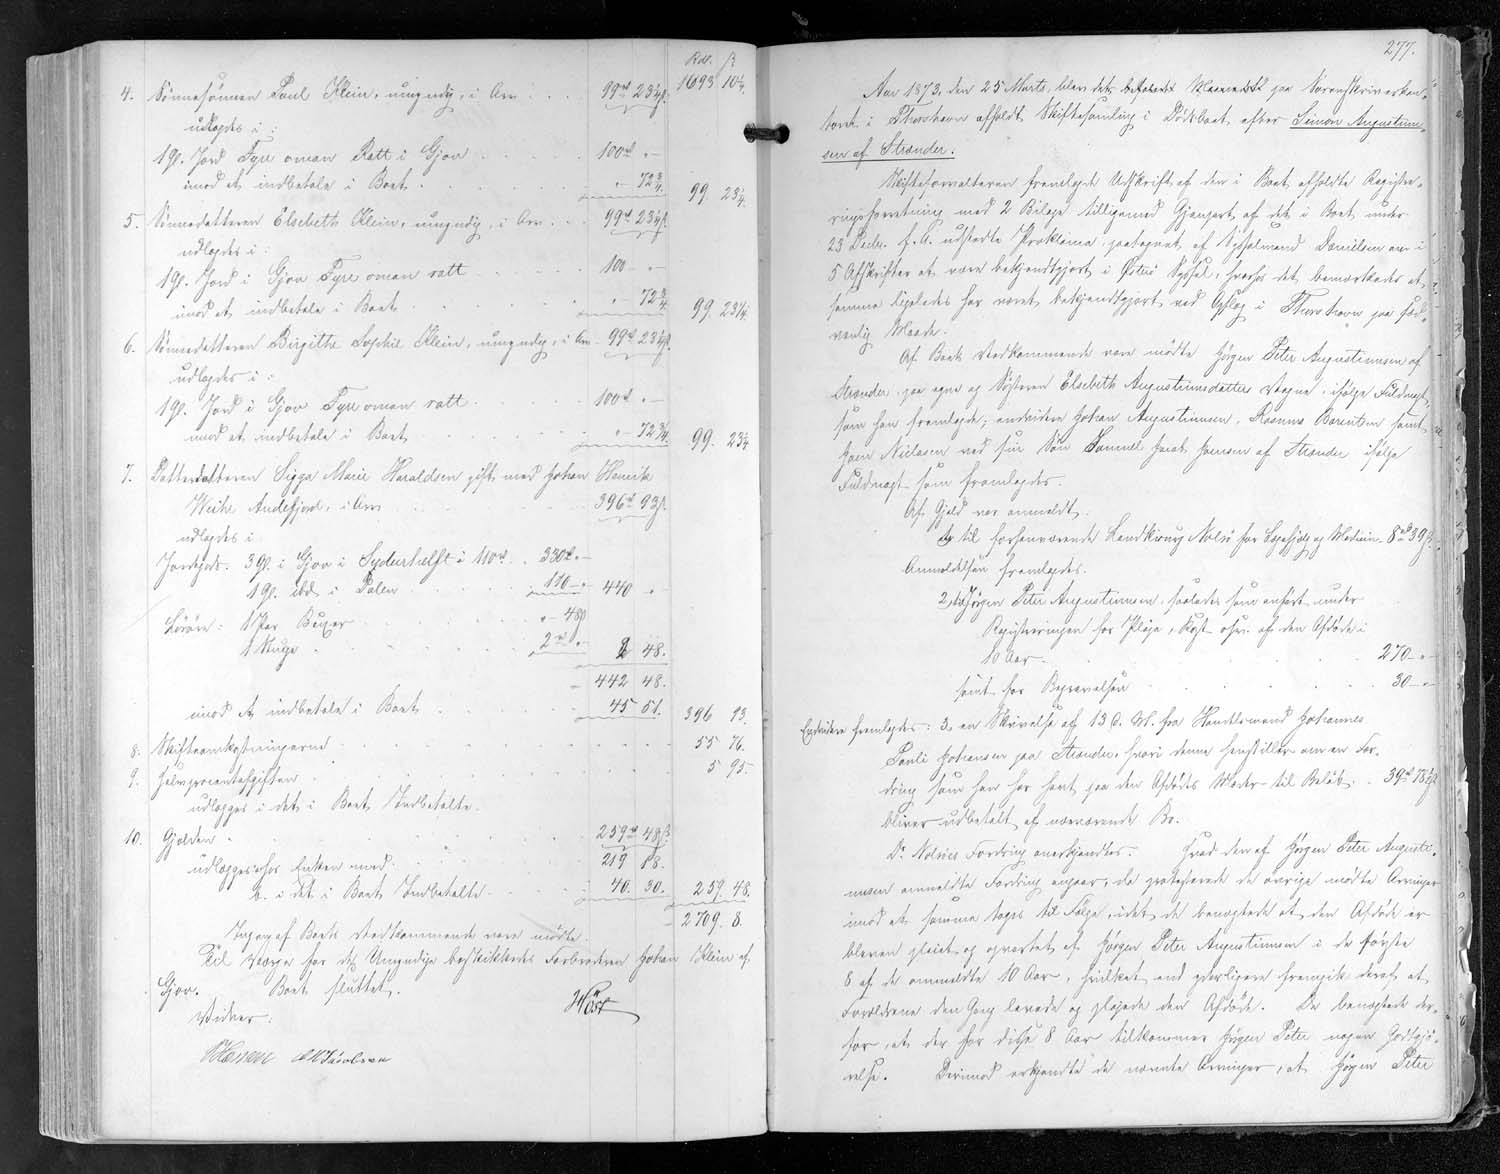 Rd. β
1693 10¼.
4. Sønnesønnen Poul Klein, umyndig, i Arv . . . 99rd 23¼β.
udlagdes i:
1 gl. Jord Fyre oman Ratt i Gjov . . . . 100rd „ -
imod at indbetale i Boet . . . . „ - 72¾ 99 23¼.
5. Sønnedatteren Elsebeth Klein, umyndig, i Arv . . . 99rd 23¼β.
udlagdes i:
1 gl. Jord i Gjov Fyre oman ratt . . . . 100 - „ -
imod at indbetale i Boet . . . . „ - 72¾ 99. 23¼.
6. Sønnedatteren Birgithe Sophie Klein, umyndig, i Arv - 99rd 23¼β.
udlagdes i:
1 gl. Jord i Gjov Fyre oman ratt . . . . 100rd „ -
imod at indbetale i Boet . . . . „ - 72¾ 99. 23¼
7. Datterdatteren Sigga Marie Haraldsen gift med Johan Henrik
Weihe Andefjord, i Arv . . . . 396rd 93β.
udlagdes i:
Jordegods. 3 gl. i Gjov i Sydurhelft i 110rd . . 330rd „ -
1 gl. ibd i Palen . . . . 110 - „ 440 „
Løsøre: 1 Par Buxer . . . . „ - 48β
1 Kuge . . . . 2rd „ - 2 48.
- 442 48.
imod at indbetale i Boet . . . . 45 51. 396 93.
8. Skifteomkostningerne . . . . 55 76.
9. Halvprocentafgiften . . . . 5 95.
udlægges i det i Boet Indbetalte.
10. Gjælden . . . . 259rd 48β.
udlægges hos Enken med . . . . 219 18.
b. i det i Boet Indbetalte . . . . 40. 30. 259. 48.
- 2709. 8.
Ingen af Boets Vedkommende vare mødte.
Til Værge for de Umyndige beskikkedes Farbroderen Johan Klein af
Gjov. Boet sluttet.
Vidner: HHöst
OHansen JacobsenE
277.
Aar 1873, den 25 Marts, blev det paa Sorenskriverkon-
toret i Thorshavn afholdt Skiftesamling i Dødsboet efter Simon Augustinus-
sen af Strænder.
Skifteforvalteren fremlagde Udskrift af den i Boet afholdte Registre-
ringsforretning med 2 Bilage tilligemed Gjenpart af det i Boet under
23 Decbr. f. A. udstedte Proklama paategnet af Sysselmand Danielsen om i
5 Afskrifter at være bekjendtgjort i Østerø Syssel, hvorhos det bemærkedes at
samme ligeledes har været bekjendtgjort ved Opslag i Thorshavn paa sæd-
vanlig Maade.
Af Boets Vedkommende vare mødte Jørgen Peter Augustinussen af
Strænder, paa egne og Søsteren Elsebeth Augustinusdatters Vegne, ifølge Fuldmagt
som han fremlagde; endvidere Johan Augustinussen, Rasmus Berentsen samt
Joen Niclasen ved sin Søn Samuel Jacob Joensen af Strænder ifølge
Fuldmagt som fremlagdes.
Af Gjæld var anmeldt.
1, til forhenværende Landkirurg Nolsö for Lægehjælp og Medicin - 8rd 39β.
Anmeldelsen fremlagdes.
2, til Jørgen Peter Augustinussen, saaledes som anført under
Registreringen for Pleje, Kost osv. af den Afdøde i
10 Aar . . . . 270 - „ -
samt for Begravelsen . . . . 30 - „ -
Endvidere fremlagdes: 3, en Skrivelse af 13 d. M. fra Handelsmand Johannes
Pauli Johansen paa Strænder, hvori denne henstiller om en For-
dring som han har havt paa den Afdødes Moder til Beløb . . 39rd 78½β
bliver udbetalt af nærværende Bo.
Dr. Nolsöes Fordring anerkjendtes. Hvad den af Jørgen Peter Augusti-
nussen anmeldte Fordring angaar, da protesterede de øvrige mødte Arvinger
imod at samme tages til Følge, idet de benægtede at den Afdøde er
bleven pleiet og opvartet af Jørgen Peter Augustinussen i de første
8 af de anmeldte 10 Aar, hvilket end yderligere fremgik deraf at
Forældrene den Gang levede og plejede den Afdøde. De benægtede der-
for, at der for disse 8 Aar tilkommer Jørgen Peter nogen Godtgjø-
relse. Derimod erkjendte de nævnte Arvinger, at Jørgen Peter